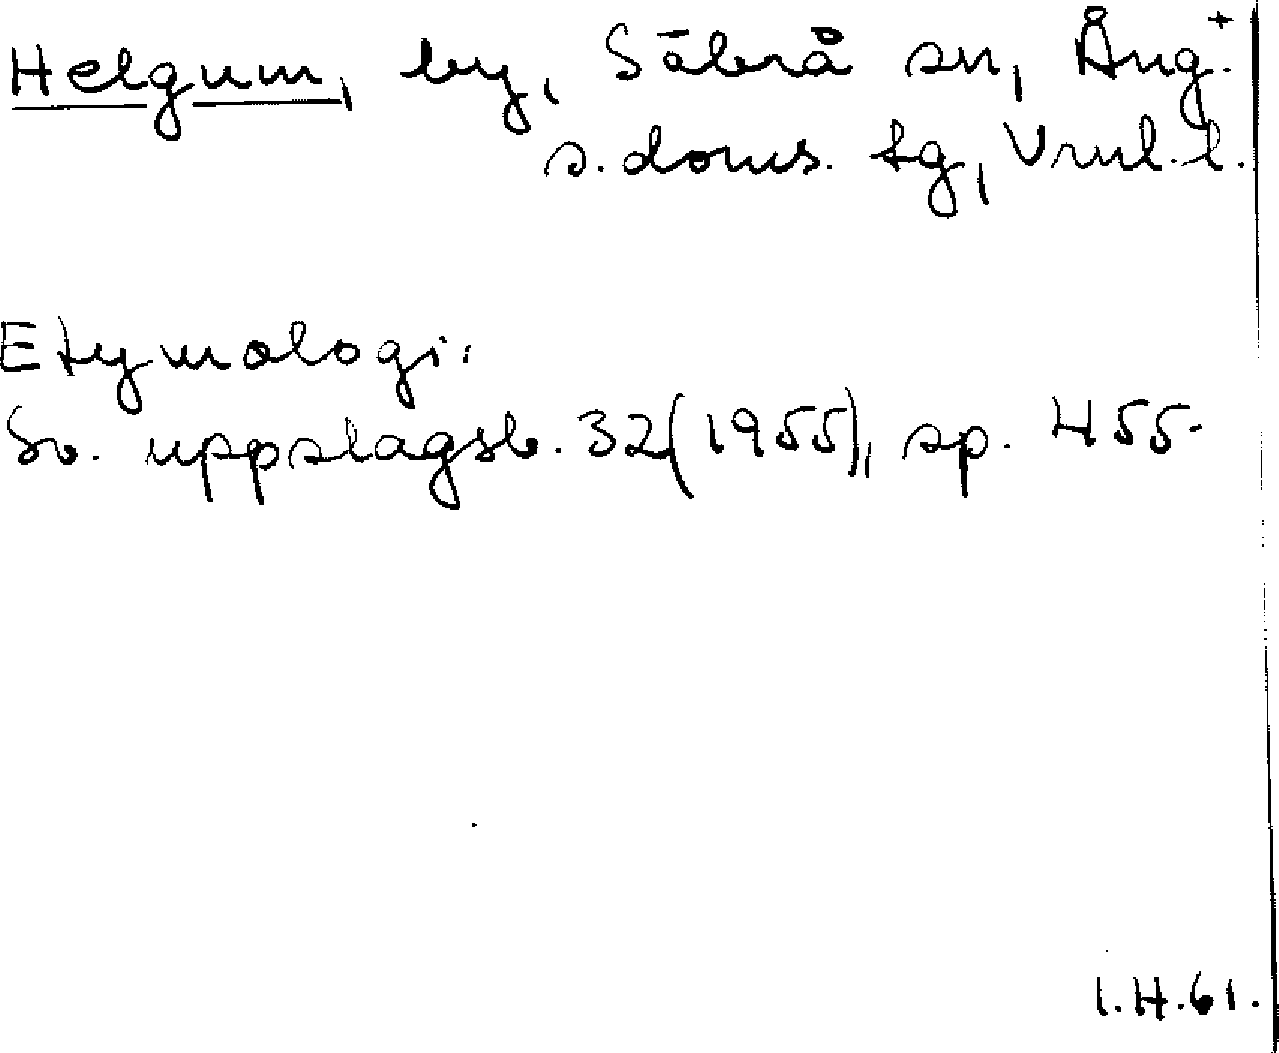 Helgum, by, Säbrå sn, Ång. +
s. doms. tg, Vrnl. l.
Etymologi:
Sv. uppslagsb. 32(1955), sp. 455.
I.H.61.